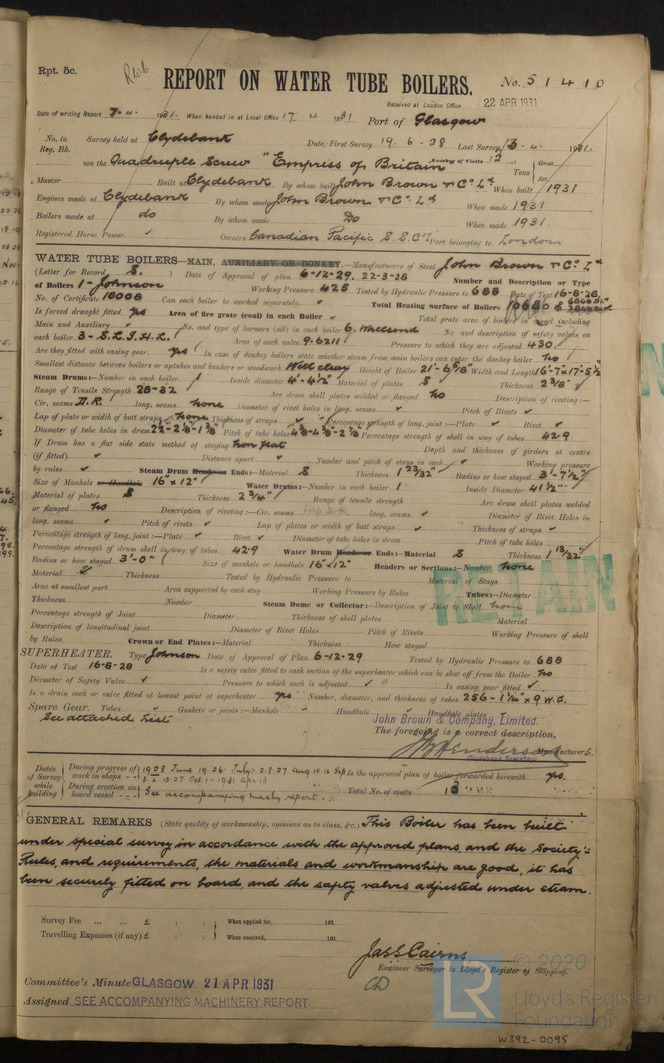 Rpt. 5c.
REPORT ON WATER TUBE BOILERS.
No. 51410
Received at London Office 22 APR 1931
Date of writing Report 7.4. 1931. When handed in at Local Office 17.4. 1931 Port of Glasgow
No. in Survey held at Clydebank Date, First Survey 19.6.28 Last Survey 13-4- 1931.
Reg. Bk. Number of Visits 12
on the Quadruple Screw "Empress of Britain" Tons Gross Net
Master Built at Clydebank By whom built John Brown & Co Ld When built 1931
Engines made at Clydebank By whom made John Brown & Co Ld When made 1931
Boilers made at do By whom made Do When made 1931.
Registered Horse Power Owners Canadian Pacific S.S. Co Port belonging to London
WATER TUBE BOILERS—MAIN, AUXILIARY OR DONKEY.—Manufacturers of Steel John Brown & Co Ld
(Letter for Record S.) Date of Approval of plan 6-12-29, 22-3-28 Number and Description or Type
of Boilers 1- Johnson Working Pressure 425 Tested by Hydraulic Pressure to 688 Date of Test 16-8-28
No. of Certificate 18008 Can each boiler be worked separately. Total Heating Surface of Boilers
Is forced draught fitted yes Area of fire grate (coal) in each Boiler Total grate area of boilers in vessel including
Main and Auxiliary No. and type of burners (oil) in each boiler 6. Wallsend No. and description of safety valves on
each boiler 3- S.L.I.H.L. Area of each valve 9.6211 Pressure to which they are adjusted 430.
Are they fitted with easing gear. yes In case of donkey boilers state whether steam from main boilers can enter the donkey boiler. no
Smallest distance between boilers or uptakes and bunkers or woodwork Well clear Height of Boiler 21'-6 5/8 Width and Length 16'-7"x17'-5 1/2
Steam Drums:—Number in each boiler 1 Inside diameter 4'-4 1/2" Material of plates S Thickness 2 3/8"
Range of Tensile Strength 28-32 Are drum shell plates welded or flanged no Description of riveting:—
Cir. seams D.R. long. seams none Diameter of rivet holes in long. seams Pitch of Rivets
Lap of plate or width of butt straps none Thickness of straps Percentage strength of long. joint:—Plate Rivet
Diameter of tubes holes in drum Pitch of tube holes Percentage strength of shell in way of tubes 42.9
If Drum has a flat side state method of staying non flat Depth and thickness of girders at centre
(if fitted) Distance apart Number and pitch of stays in each Working pressure
by rules Steam Drum Heads or Ends:—Material S Thickness 1 23/32" Radius or how stayed 3'-7 1/2"
Size of Manhole or Handhole 16"x12" Water Drums:—Number in each boiler 1 Inside Diameter 41 1/2"
Material of plates S Thickness 2 3/4" Range of tensile strength Are drum shell plates welded
or flanged no Description of riveting:—Cir. seams long. seams Diameter of Rivet Holes in
long. seams Pitch of rivets Lap of plates or width of butt straps Thickness of straps
Percentage strength of long. joint:—Plate Rivet Diameter of tube holes in drum Pitch of tube holes
Percentage strength of drum shell in way of tubes 42.9 Water Drum Heads or Ends:—Material S Thickness 1 13/32"
Radius or how stayed 3'-0" Size of manhole or handhole 16"x12" Headers or Sections:—Number none
Material Thickness Tested by Hydraulic Pressure to Material of Stays
Area at smallest part Area supported by each stay Working Pressure by Rules Tubes:—Diameter
Thickness Number Steam Dome or Collector:—Description of Joint to Shell none
Percentage strength of Joint Diameter Thickness of shell plates Material
Description of longitudinal joint Diameter of Rivet Holes Pitch of Rivets Working Pressure of shell
by Rules Crown or End Plates:—Material Thickness How stayed
RETAIN
SUPERHEATER. Type Johnson Date of Approval of Plan 6-12-29 Tested by Hydraulic Pressure to 688
Date of Test 16-8-28 Is a safety valve fitted to each section of the superheater which can be shut off from the Boiler no
Diameter of Safety Valve Pressure to which each is adjusted Is easing gear fitted
Is a drain cock or valve fitted at lowest point of superheater yes Number, diameter, and thickness of tubes 256- x 9 W.G.
Spare Gear. Tubes Gaskets or joints:—Manhole Handhole Handhole plates
See attached List
John Brown & Company, Limited.
The foregoing is a correct description,
Manufacturer.
Clydebank Secretary
Dates of Survey while building
During progress of work in shops - - 1928 June 19 26 July
During erection on board vessel - - - See accompanying machy report. Total No. of visits
Is the approved plan of boiler forwarded herewith yes.
GENERAL REMARKS (State quality of workmanship, opinions as to class, &c.) This Boiler has been built
under special survey in accordance with the approved plans and the Society's
Rules, and requirements, the materials and workmanship are good, it has
been securely fitted on board and the safety valves adjusted under steam.
Survey Fee ... ... £ : : When applied for, 191
Travelling Expenses (if any) £ : : When received, 191
Jas S Cairns
Engineer Surveyor to Lloyd's Register of Shipping.
Committee's Minute GLASGOW 21 APR 1931
Assigned SEE ACCOMPANYING MACHINERY REPORT.
© 2020
LR
Lloyd's Register
Foundation
W392-0095